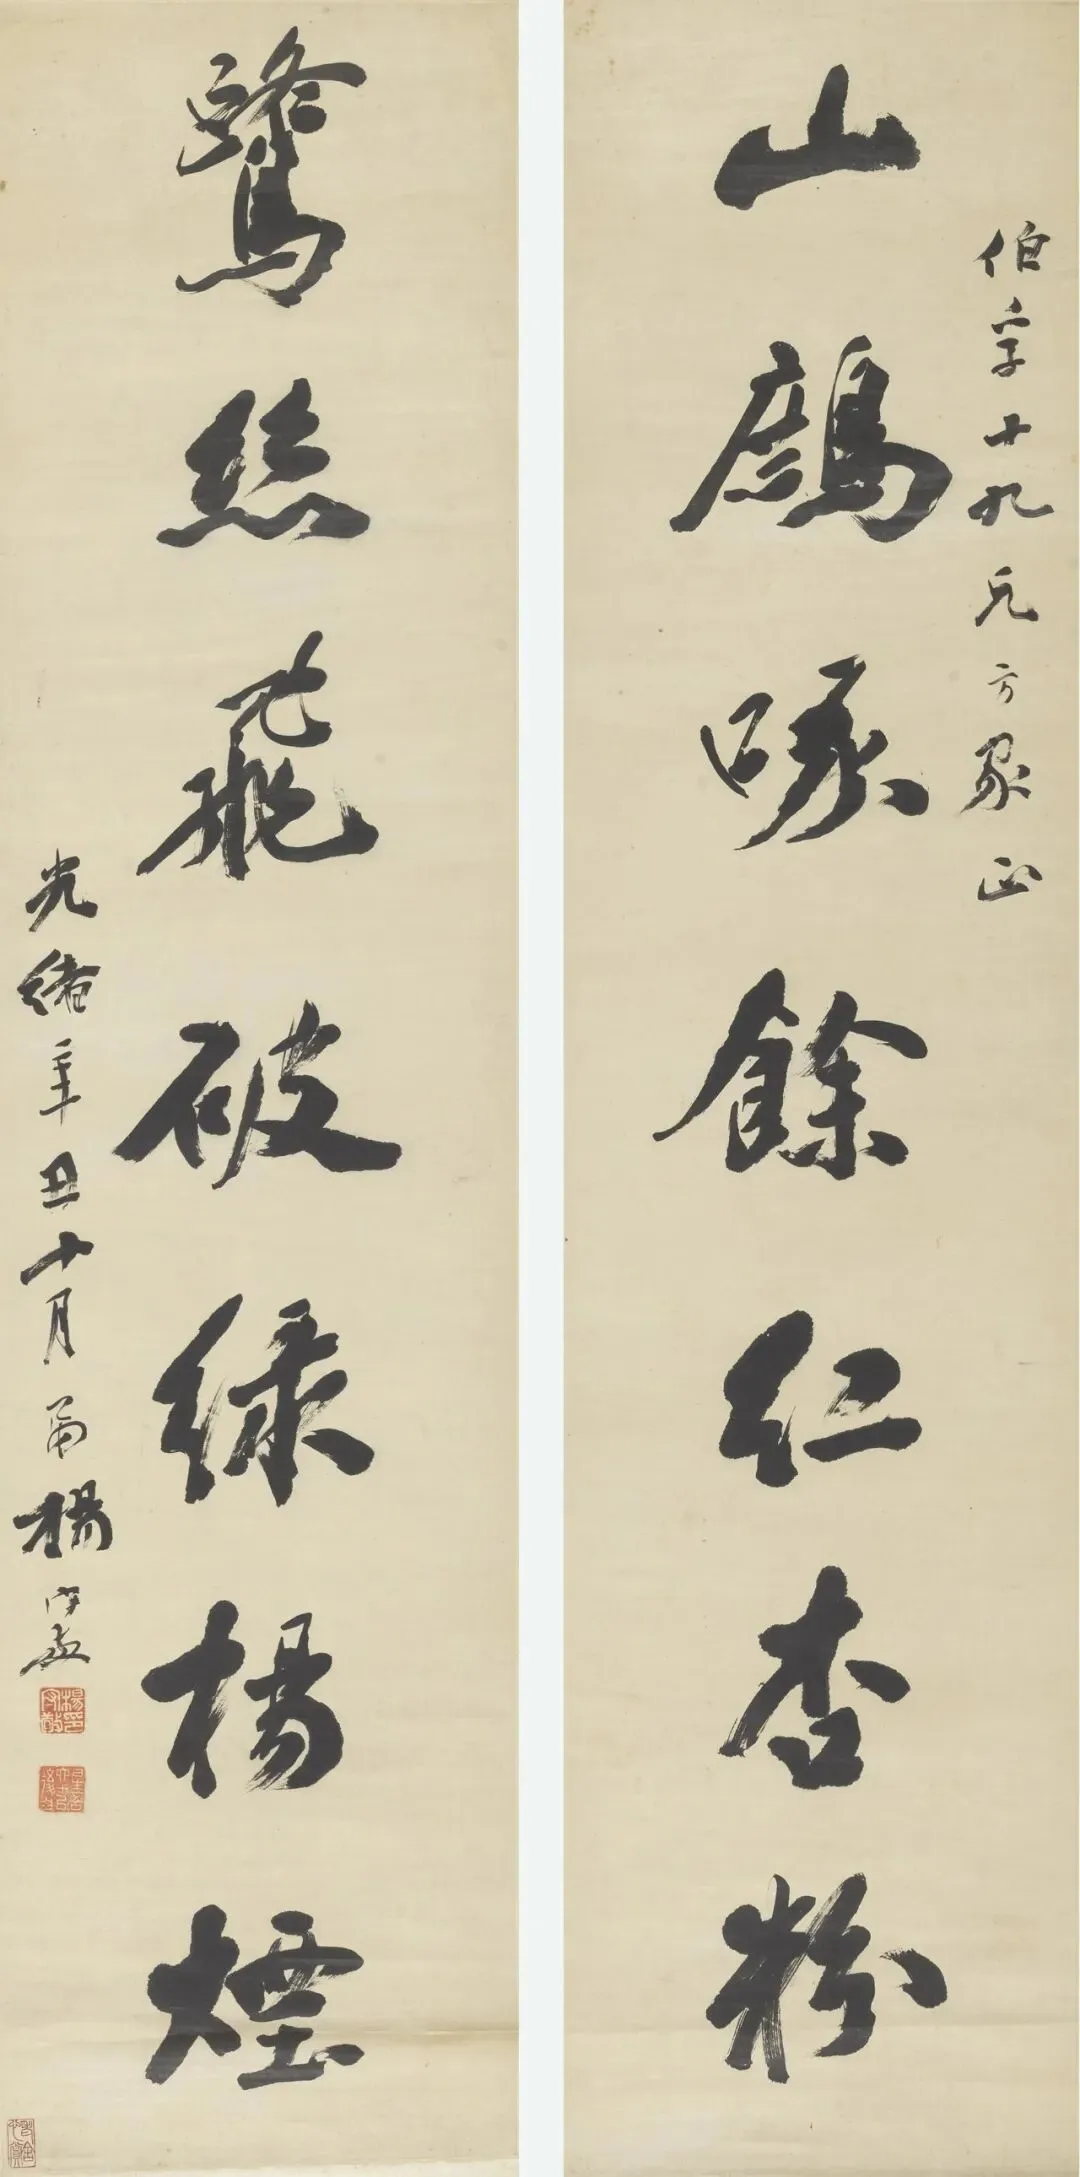 伯孚十九兄方家正
山鷓啄餘紅杏粉
鷺絲飛破綠楊煙
光緒辛丑十月弟楊守敬
楊印守敬